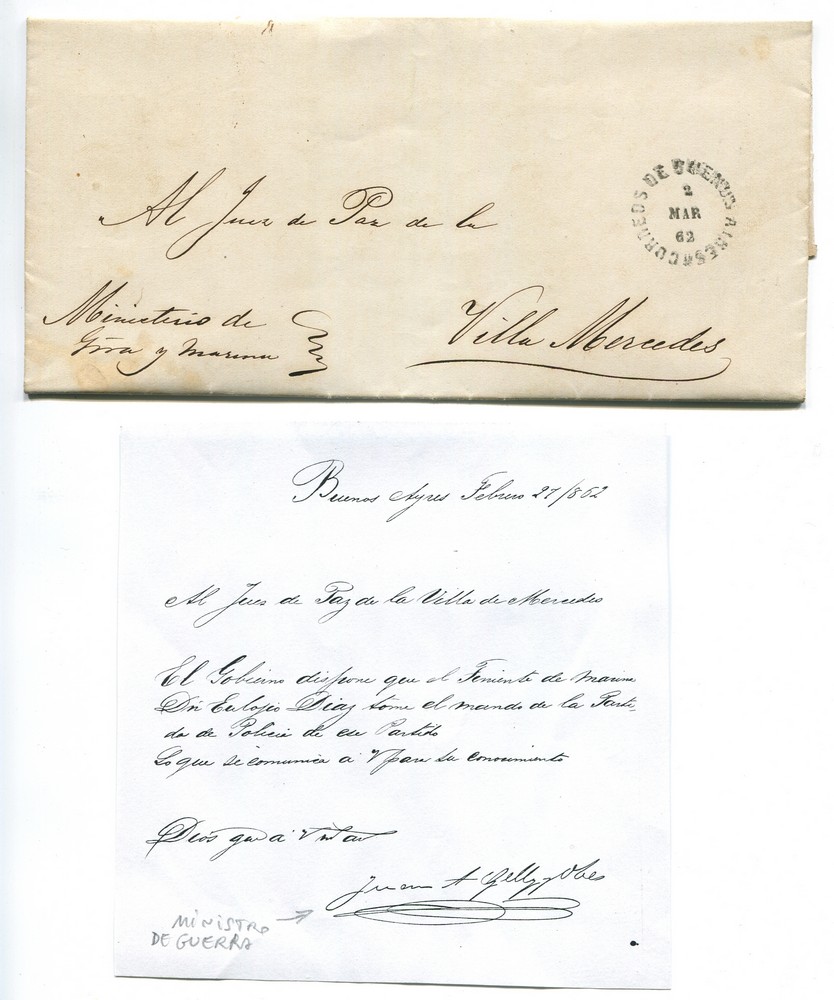 Al Juez de Paz de la
Villa Mercedes
Ministerio de
Grra y Marina
CORREOS DE BUENOS AIRES
2
MAR
62
Buenos Ayres Febrero 27/862
Al Jues de Paz de la Villa de Mercedes
El Gobierno dispone que el Teniente de marina
Dn Eulojio Diaz tome el mando de la Parti-
da de Policia de ese Partido
Lo que se comunica á V para su conocimiento
Dios gue á V
Juan A Gelly y Obes
MINISTRO
DE GUERRA